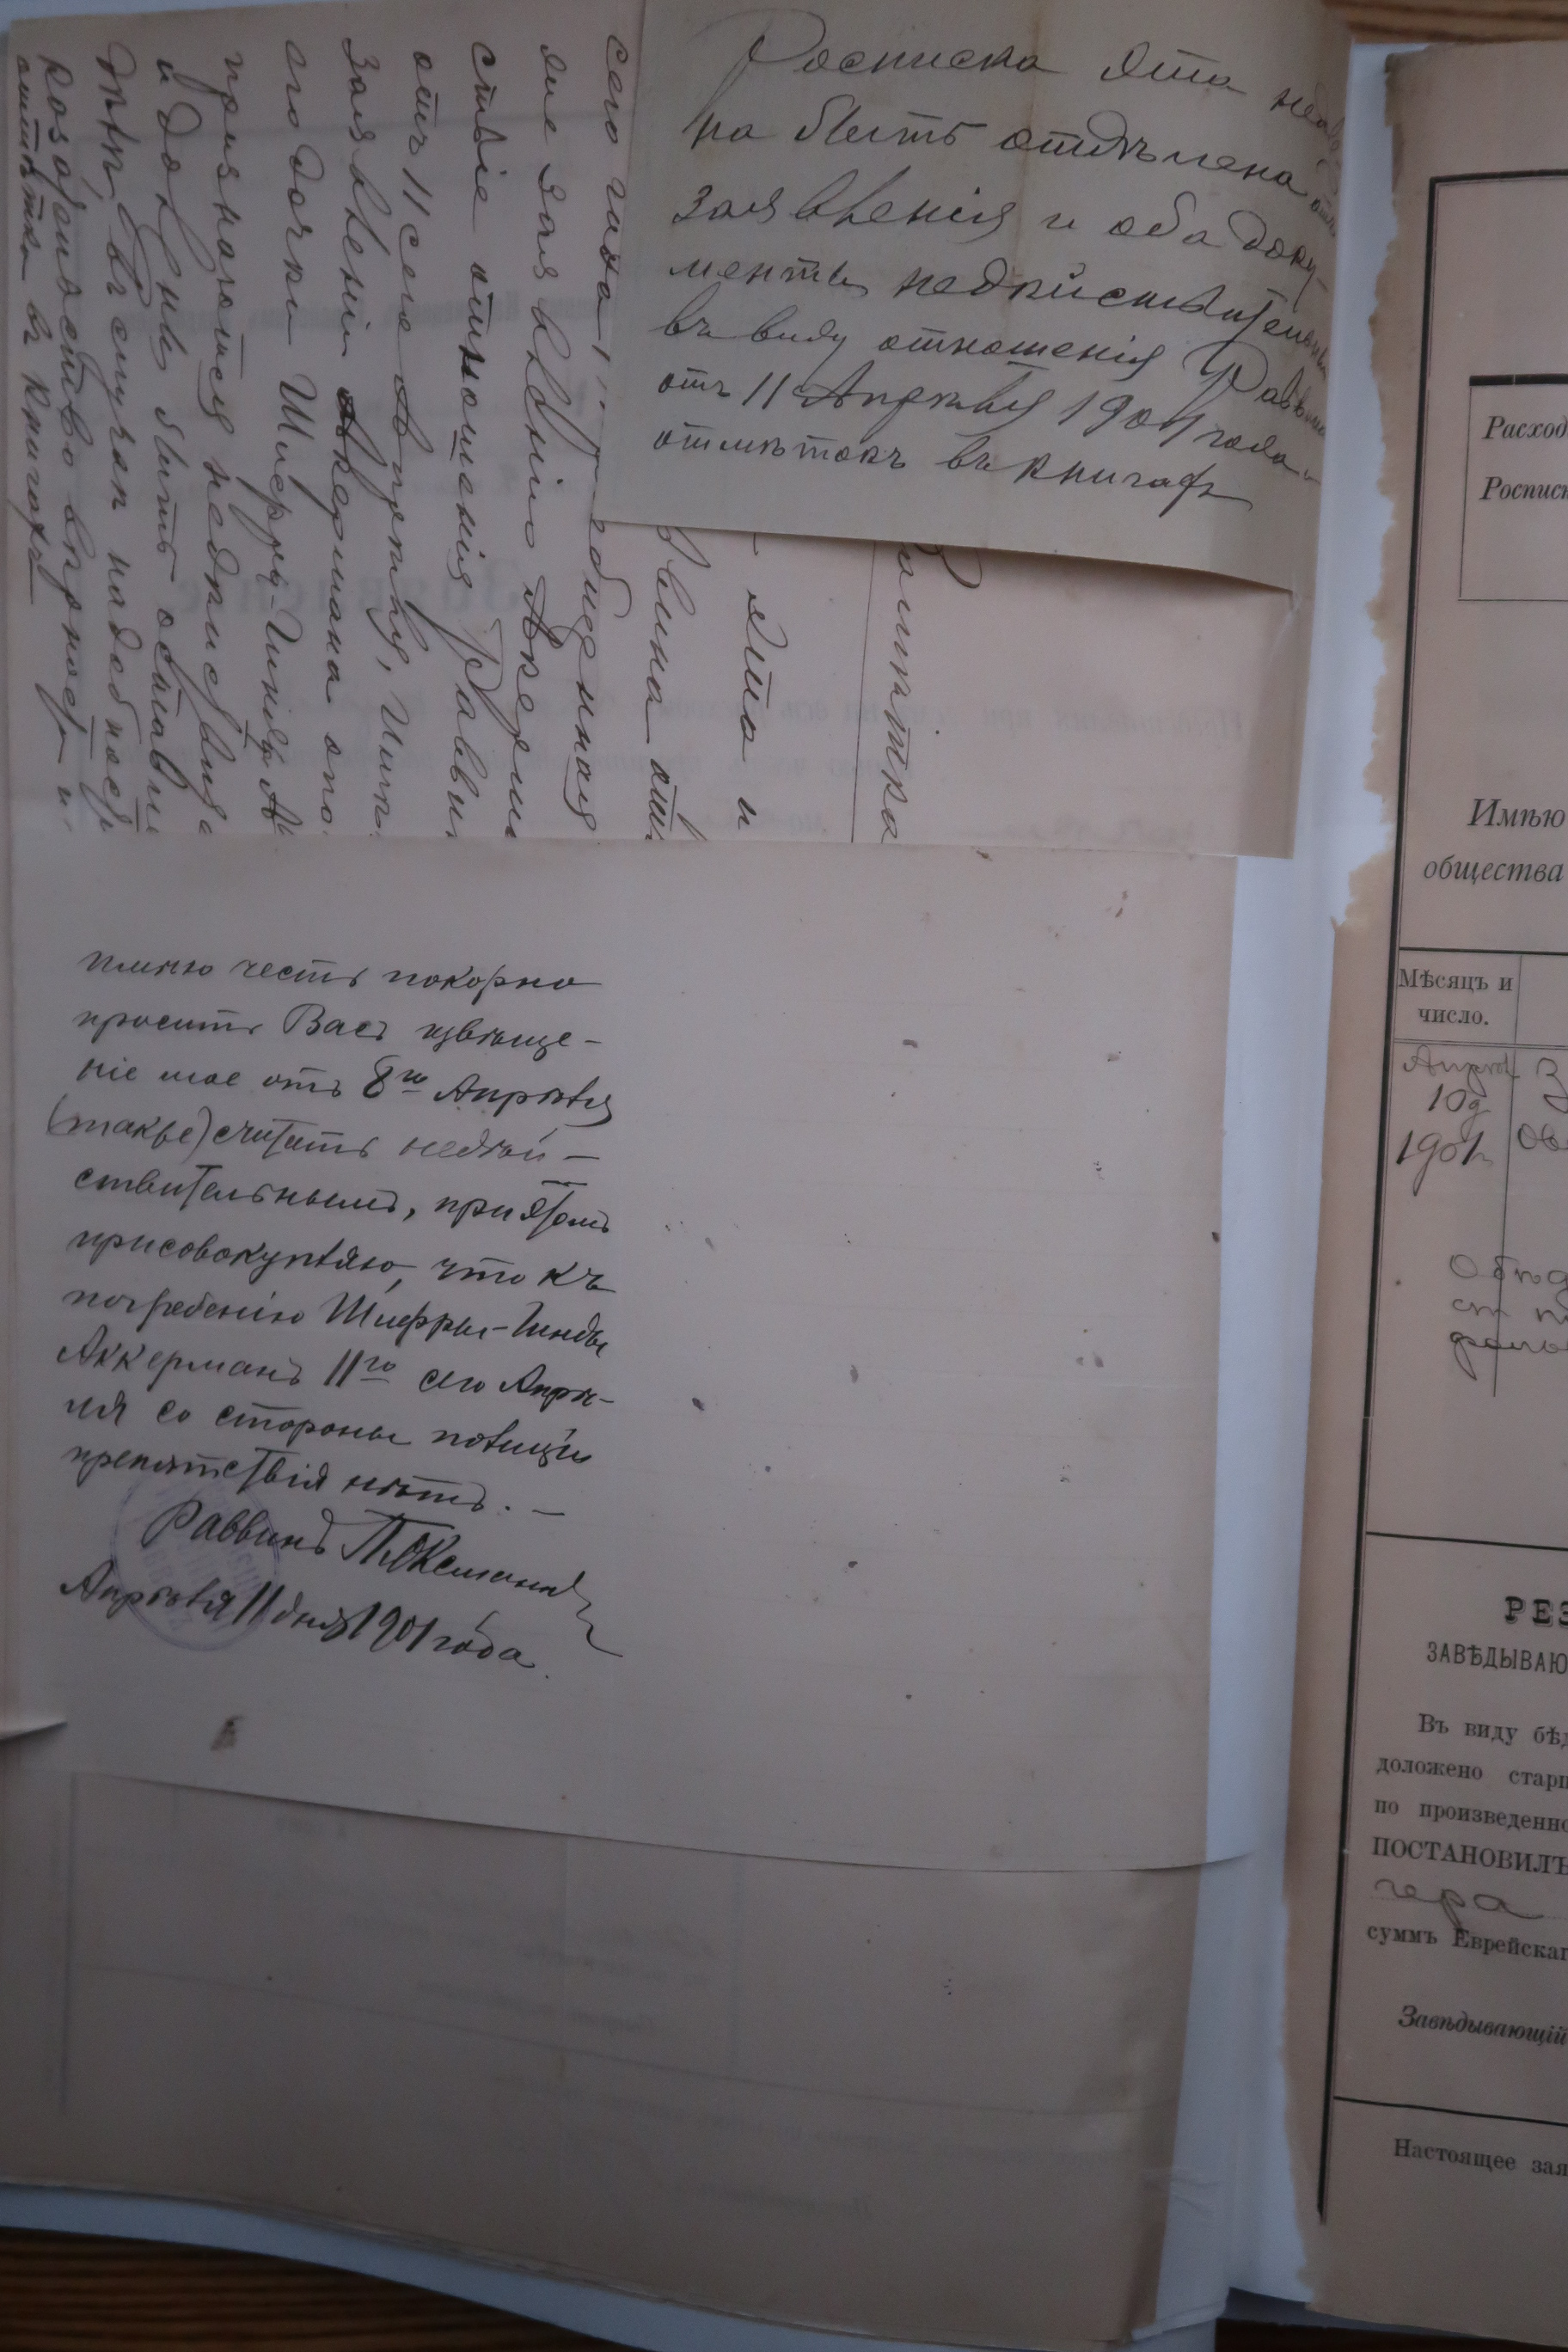 Росписка эта
на быть отдѣлена
заявленія и оба доку-
менты недѣйствительны
въ виду отношенія Равви
отъ 11 Апрѣля 1901 года
отмѣтокъ въ книгахъ
отмѣтка
эта и
ввина от
сего года общенная
яне заявленію Акерм
ствіе отношенія Равви
отъ 11 сего Апрѣля,
заявленіи Акермана о по
его дочки Шифры-Гинды
признаются недѣйстви
и должны быть оставле
дѣлѣ въ случаѣ надобност
въ книгахъ
имѣю честь покорно
просить Васъ извѣще-
ніе мое отъ 8го Апрѣля
(также) считать недѣй-
ствительнымъ, при этомъ
присовокупляю, что къ
погребенію Шифры-Гинды
Аккерманъ 11го сего Апрѣ-
ля со стороны полиціи
препятствія нѣтъ. —
Раввинъ
Апрѣля 11 дня 1901 года.
Расход
Росписк
Имѣю
общества
Мѣсяцъ и
число.
Апрѣл
10д
1901
РЕЗ
ЗАВѢДЫВАЮ
Въ виду бѣд
доложено старш
по произведенно
ПОСТАНОВИЛЪ
суммъ Еврейскаг
Завѣдывающій
Настоящее зая